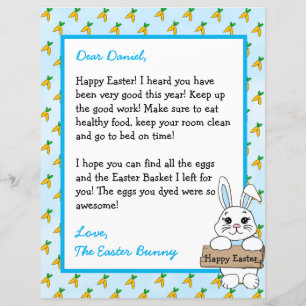 Dear Daniel,
Happy Easter! I heard you have
been very good this year! Keep up
the good work! Make sure to eat
healthy food, keep your room clean
and go to bed on time!
I hope you can find all the eggs
and the Easter Basket I left for
you! The eggs you dyed were so
awesome!
Love,
The Easter Bunny
Happy Easter